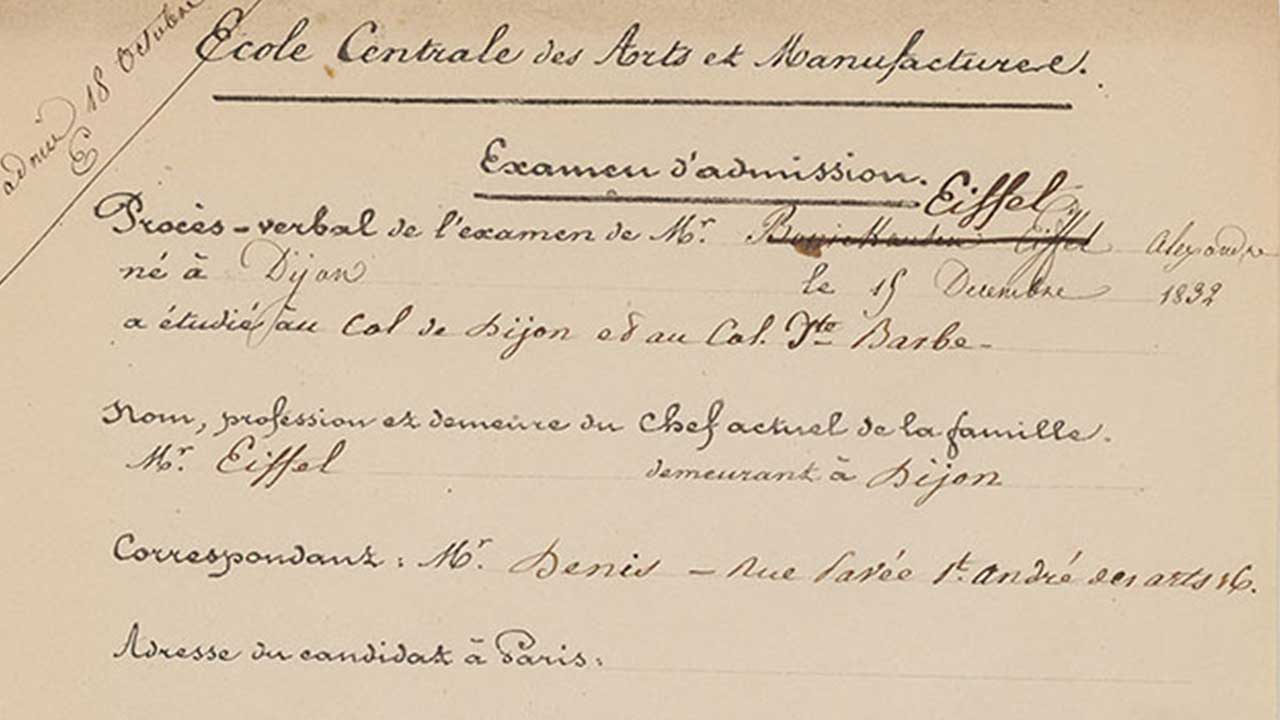 admis 18 Octobre
E
Ecole Centrale des Arts et Manufactures.
Examen d'admission.
Eiffel
Procès-verbal de l'examen de Mr. Bonickausen Eiffel Alexandre
né à Dijon le 15 Decembre 1832
a étudié au Col de Dijon et au Col. Ste Barbe-
Nom, profession et demeure du Chef actuel de la famille.
Mr. Eiffel demeurant à Dijon
Correspondant: Mr. Denis - Rue Pavée St. André des arts 16.
Adresse du candidat à Paris: